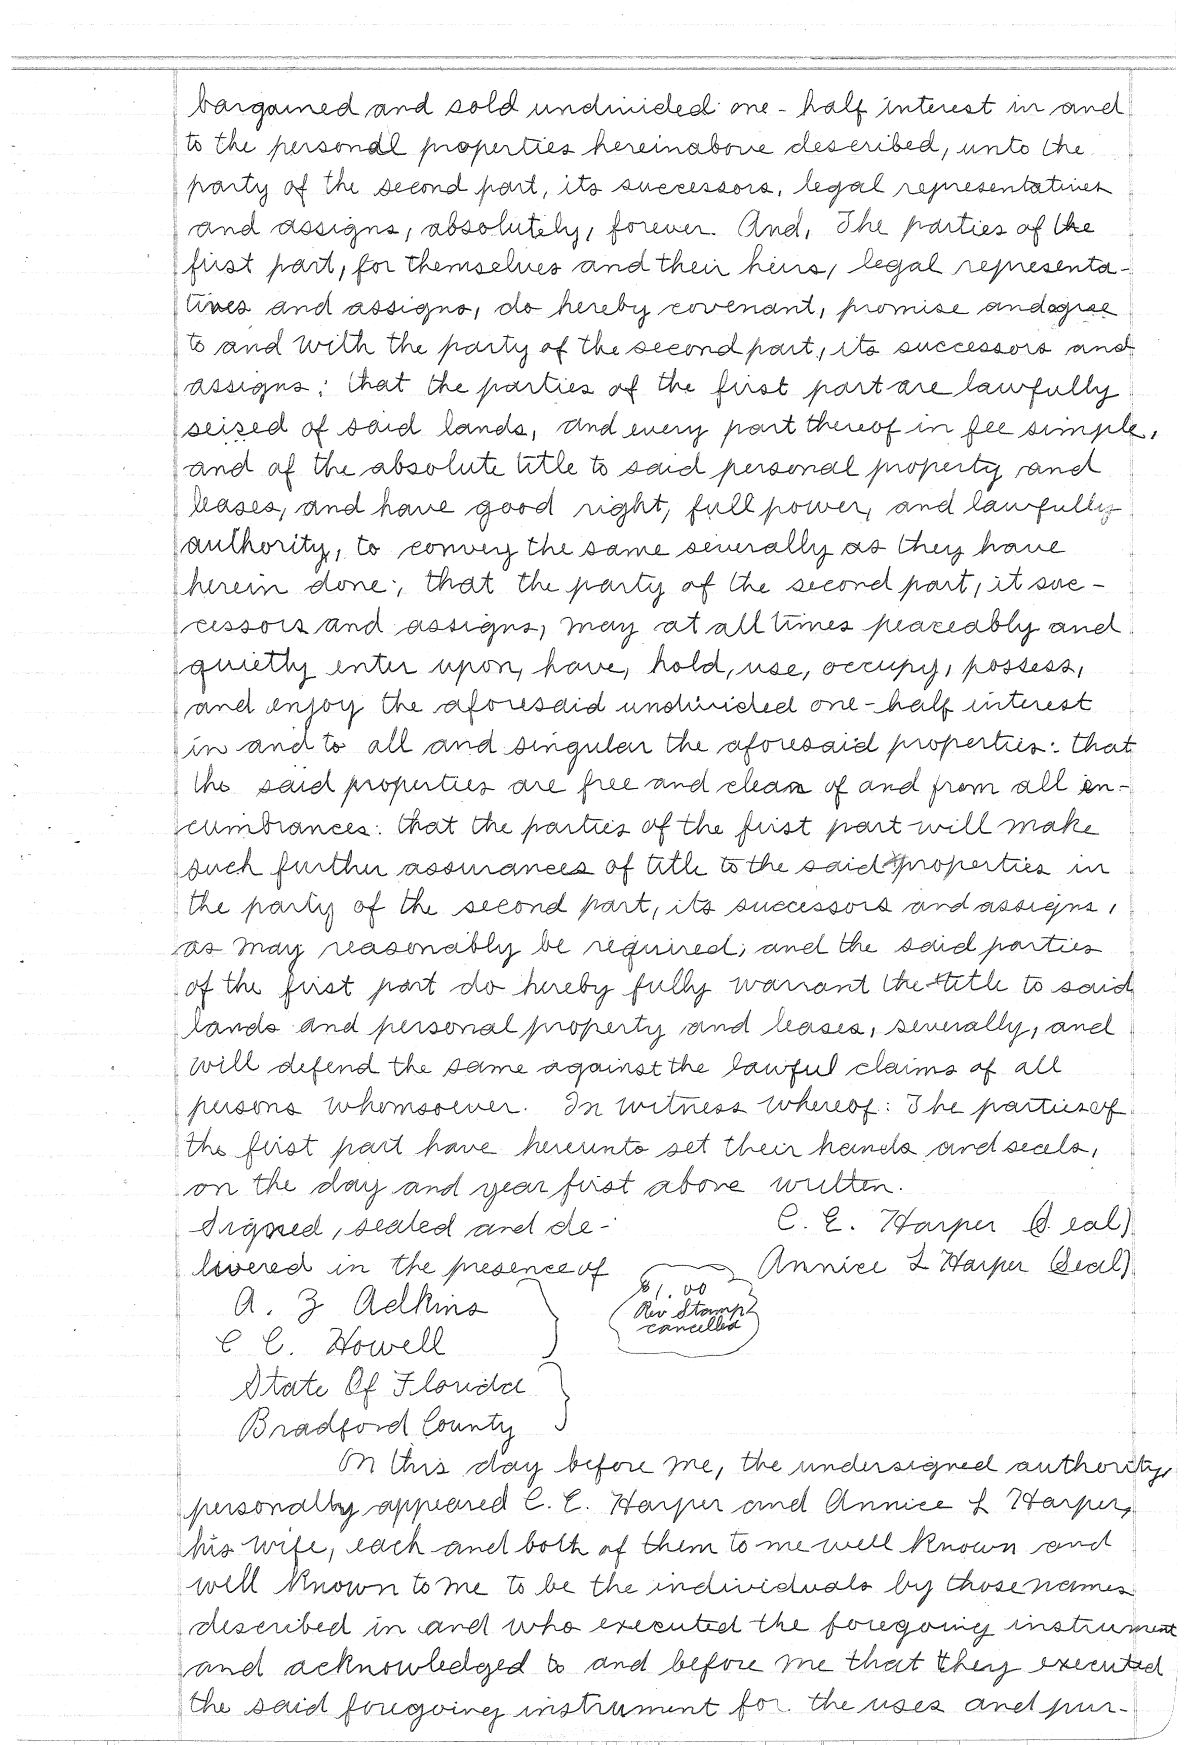 bargained and sold undivided one-half interest in and
to the personal properties hereinabove described, unto the
party of the second part, its successors, legal representatives
and assigns, absolutely, forever. And, The parties of the
first part, for themselves and their heirs, legal representa-
tives and assigns, do hereby covenant, promise and agree
to and with the party of the second part, its successors and
assigns: that the parties of the first part are lawfully
seized of said lands, and every part thereof in fee simple,
and of the absolute title to said personal property and
leases, and have good right, full power, and lawfully
authority, to convey the same severally as they have
herein done; that the party of the second part, it suc-
cessors and assigns, may at all times peaceably and
quietly enter upon, have, hold, use, occupy, possess,
and enjoy the aforesaid undivided one-half interest
in and to all and singular the aforesaid properties: that
the said properties are free and clean of and from all en-
cumbrances: that the parties of the first part will make
such further assurances of title to the said properties in
the party of the second part, its successors and assigns,
as may reasonably be required; and the said parties
of the first part do hereby fully warrant the title to said
lands and personal property and leases, severally, and
will defend the same against the lawful claims of all
persons whomsoever. In witness whereof: The parties of
the first part have hereunto set their hands and seals,
on the day and year first above written.
Signed, sealed and de- C. E. Harper (Seal)
livered in the presence of Annice L Harper (Seal)
A. Z Adkins
C C. Howell
$1.00
Rev Stamp
cancelled
State Of Florida
Bradford County
On this day before me, the undersigned authority,
personally appeared C. E. Harper and Annice L Harper,
his wife, each and both of them to me well known and
well known to me to be the individuals by those names
described in and who executed the foregoing instrument
and acknowledged to and before me that they executed
the said foregoing instrument for the uses and pur-